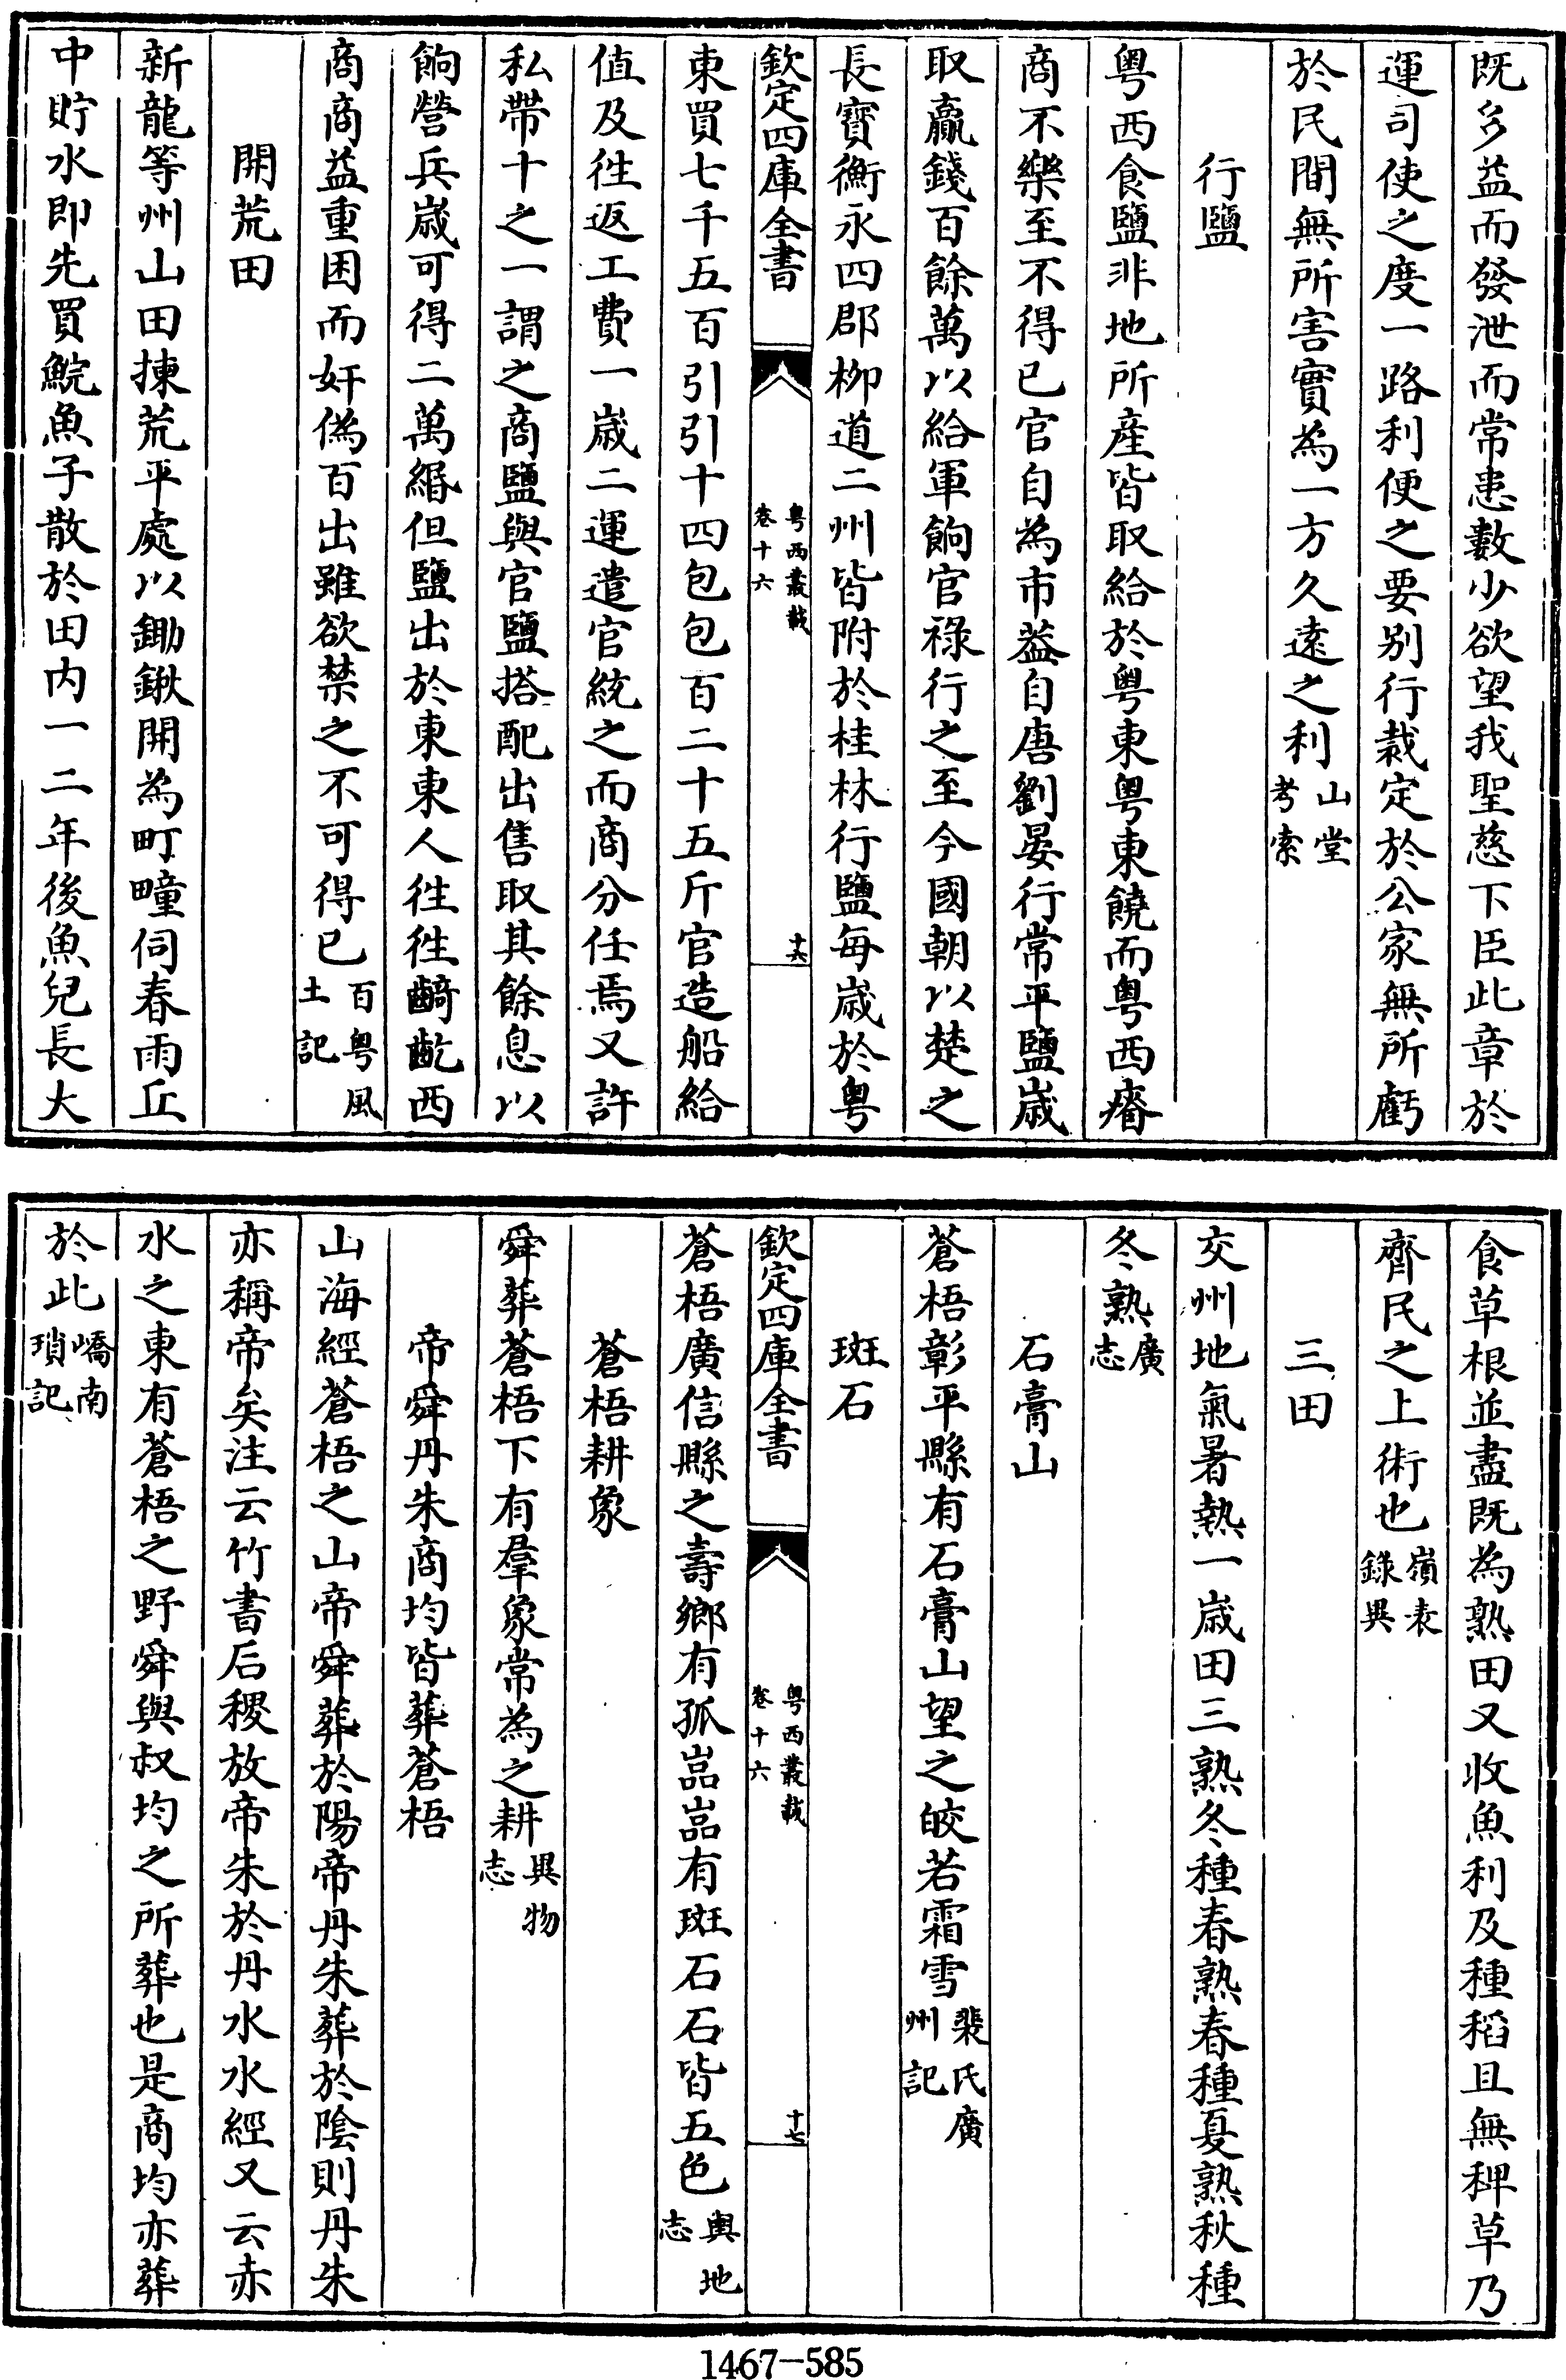 既多益而發泄而常患數少欲望我聖慈下臣此章於
運司使之度一路利便之要别行裁定於公家無所虧
於民間無所害實為一方久遠之利山堂考索
行鹽
粤西食鹽非地所產皆取給於粤東粤東饒而粤西瘠
商不樂至不得已官自為市葢自唐劉晏行常平鹽歲
取贏錢百餘萬以給軍餉官祿行之至今國朝以楚之
長寳衡永四郡柳道二州皆附於桂林行鹽每歲於粤
欽定四庫全書
粤西叢載
卷十六
十六
東買七千五百引引十四包包百二十五斤官造船給
值及徃返工費一歲二運遣官統之而商分任焉又許
私帶十之一謂之商鹽與官鹽搭配出售取其餘息以
餉營兵歲可得二萬緡但鹽出於東東人徃徃齮齕西
商商益重困而奸偽百出雖欲禁之不可得已百粤風土記
開荒田
新龍等州山田揀荒平處以鋤鍬開為町疃伺春雨丘
中貯水即先買鯇魚子散於田内一二年後魚兒長大
食草根並盡既為熟田又收魚利及種稻且無稗草乃
齊民之上術也嶺表錄異
三田
交州地氣暑熱一歲田三熟冬種春熟春種夏熟秋種
冬熟廣志
石膏山
蒼梧彰平縣有石膏山望之皎若霜雪裴氏廣州記
斑石
欽定四庫全書
粤西叢載
卷十六
十七
蒼梧廣信縣之壽鄉有孤嵓嵓有斑石石皆五色輿地志
蒼梧耕象
舜葬蒼梧下有羣象常為之耕異物志
帝舜丹朱商均皆葬蒼梧
山海經蒼梧之山帝舜葬於陽帝丹朱葬於陰則丹朱
亦稱帝矣注云竹書后稷放帝朱於丹水水經又云赤
水之東有蒼梧之野舜與叔均之所葬也是商均亦葬
於此嶠南瑣記
1467-585